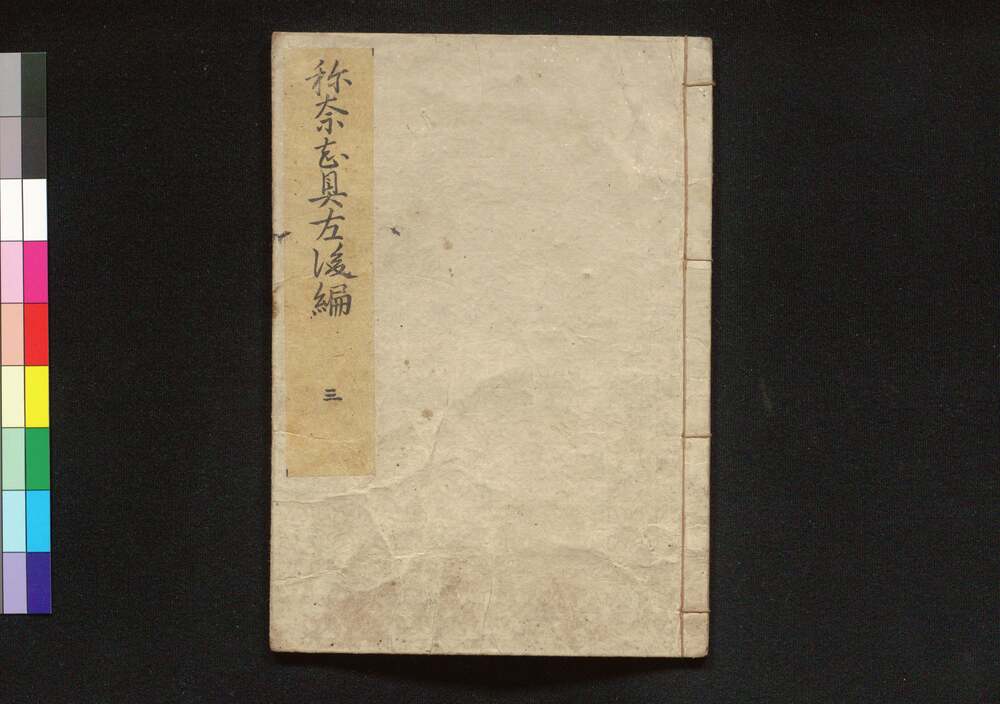 祢奈志具左後編
三